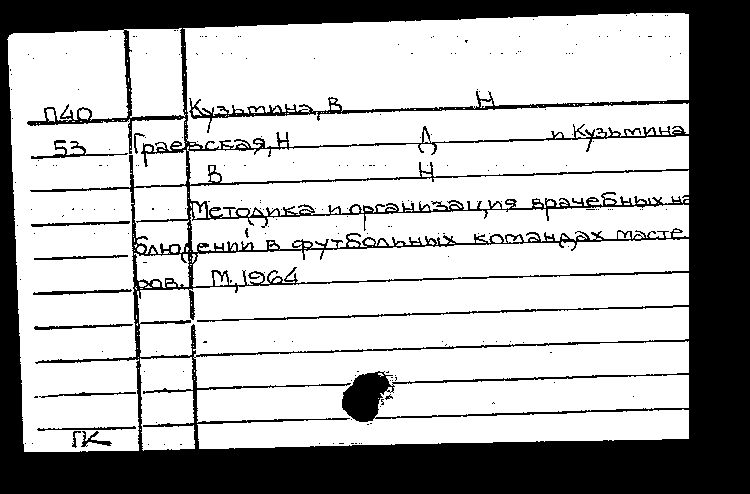 П40 Кузьмина, В Н
53 Граевская, Н Д и Кузьмина
В Н
Методика и организация врачебных на
блюдений в футбольных командах масте
ров. М, 1964
ПК